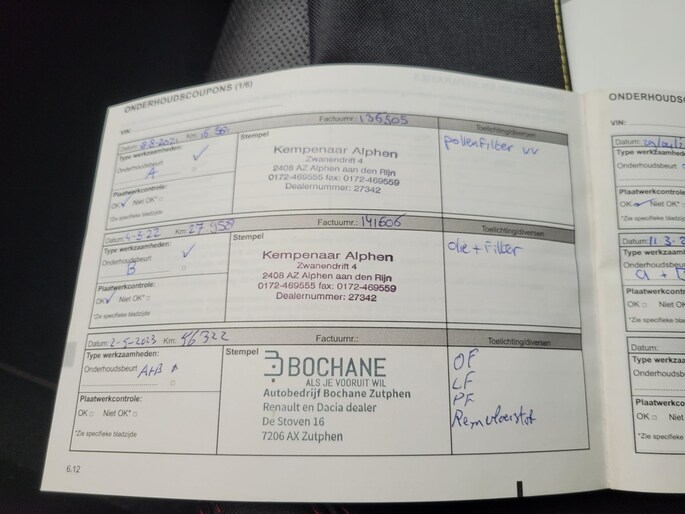 ONDERHOUDSCOUPONS (1/6)
VIN:
Datum: 8-8-2021 Km:
Factuurnr.: 136505
Type werkzaamheden:
Onderhoudsbeurt
A
Plaatwerkcontrole:
OK Niet OK*
*Zie specifieke bladzijde
Stempel
Kempenaar Alphen
Zwanendrift 4
2408 AZ Alphen aan den Rijn
0172-469555 fax: 0172-469559
Dealernummer: 27342
Toelichting/diversen
pollenfilter vv
Datum: 4-3-22 Km: 27 958
Factuurnr.: 141606
Type werkzaamheden:
Onderhoudsbeurt
B
Plaatwerkcontrole:
OK Niet OK*
*Zie specifieke bladzijde
Stempel
Kempenaar Alphen
Zwanendrift 4
2408 AZ Alphen aan den Rijn
0172-466555 fax: 0172-469559
Dealernummer: 27342
Toelichting/diversen
olie + Filter
Datum: 2-5-2023 Km: 46322
Factuurnr.:
Type werkzaamheden:
Onderhoudsbeurt A+B
Plaatwerkcontrole:
OK Niet OK*
*Zie specifieke bladzijde
Stempel
BOCHANE
ALS JE VOORUIT WIL
Autobedrijf Bochane Zutphen
Renault en Dacia dealer
De Stoven 16
7206 AX Zutphen
Toelichting/diversen
OF
LF
PF
Remvloeistof
6.12
ONDERHOUDSC
VIN:
Datum:
Type werkzaamhe
Onderhoudsbeurt
Plaatwerkcontrole
OK Niet OK*
*Zie specifieke blad
Datum: 11-3-2
Type werkzaamh
Onderhoudsbeurt
a +
Plaatwerkcontr
OK Niet OK
*Zie specifieke
Datum:
Type werkza
Onderhoudsb
Plaatwerkco
OK
*Zie specifi